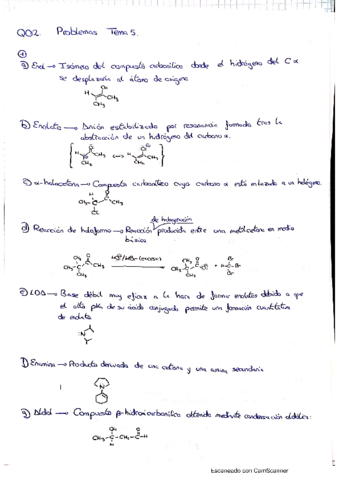 QO2. Problemas Tema 5.
①
a) Enol → Isómero del compuesto carbonílico donde el hidrógeno del Cα
se desplazaría al átomo de oxígeno
b) Enolato → Anión estabilizado por resonancia formado tras la
abstracción de un hidrógeno del carbono α.
c) α-halocetona → Compuesto carbonílico cuyo carbono α está enlazado a un halógeno.
de halogenación
d) Reacción de haloformo → Reacción producida entre una metilcetona en medio
básico
e) LDA → Base débil muy eficaz a la hora de formar enolatos debido a que
el alto pKa de su ácido conjugado permite una formación cuantitativa
de enolato
f) Enamina → Producto derivado de una cetona y una amina secundaria
g) Aldol → Compuesto β-hidroxicarbonílico obtenido mediante condensación aldólica:
Escaneado con CamScanner